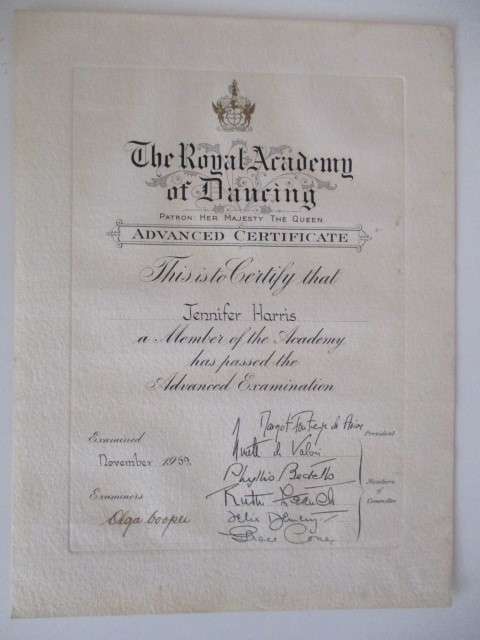 The Royal Academy
of Dancing
PATRON: HER MAJESTY THE QUEEN
ADVANCED CERTIFICATE
This is to Certify that
Jennifer Harris
a Member of the Academy
has passed the
Advanced Examination
Examined
November 1959.
Examiners
Olga Cooper
Margot Fonteyn de Arias
President
Ninette de Valois
Phyllis Bedells
Ruth French
Members
of
Committee
Grace Cone